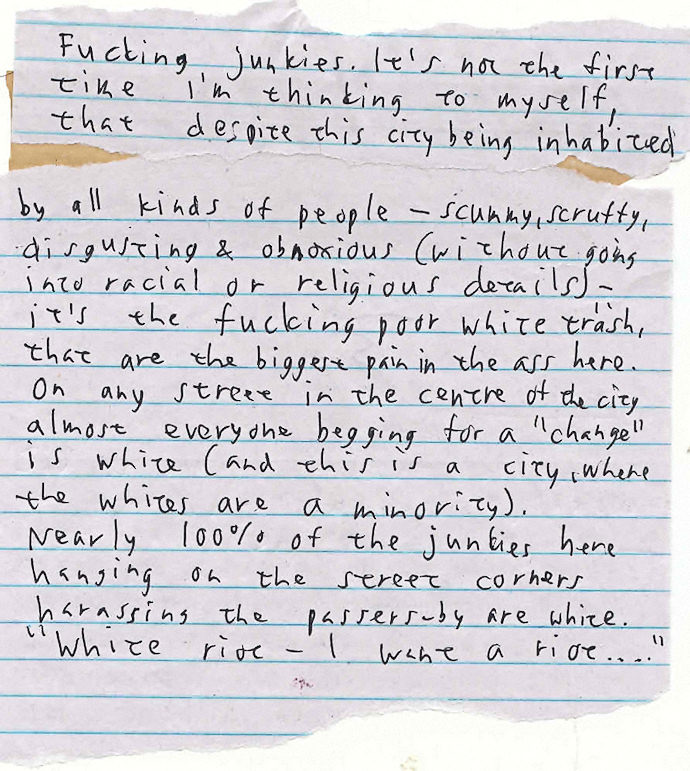 Fucking junkies. It's not the first
time I'm thinking to myself,
that despite this city being inhabited
by all kinds of people – scummy, scruffy,
disgusting & obnoxious (without going
into racial or religious details) –
it's the fucking poor white trash,
that are the biggest pain in the ass here.
On any street in the centre of the city
almost everyone begging for a "change"
is white (and this is a city, where
the whites are a minority).
Nearly 100% of the junkies here
hanging on the street corners
harassing the passers-by are white.
"White riot – I want a riot...."